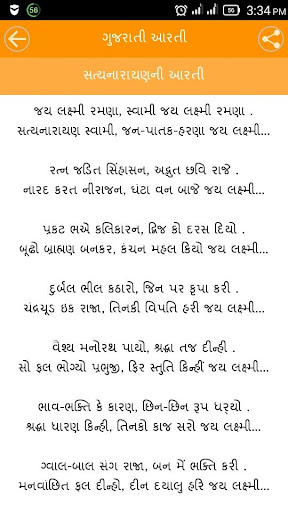 58
56
3:34 PM
ગુજરાતી આરતી
સત્યનારાયણની આરતી
જય લક્ષ્મી રમણા, સ્વામી જય લક્ષ્મી રમણા .
સત્યનારાયણ સ્વામી, જન-પાતક-હરણા જય લક્ષ્મી...
રત્ન જડિત સિંહાસન, અદ્ભુત છવિ રાજે .
નારદ કરત નીરાજન, ઘંટા વન બાજે જય લક્ષ્મી...
પ્રકટ ભએ કલિકારન, દ્વિજ કો દરસ દિયો .
બૂઢો બ્રાહ્મણ બનકર, કંચન મહલ કિયો જય લક્ષ્મી...
દુર્બલ ભીલ કઠારો, જિન પર કૃપા કરી .
ચંદ્રચૂડ ઇક રાજા, તિનકી વિપતિ હરી જય લક્ષ્મી...
વૈશ્ય મનોરથ પાયો, શ્રદ્ધા તજ દીન્હી .
સો ફલ ભોગ્યો પ્રભુજી, ફિર સ્તુતિ કિન્હીં જય લક્ષ્મી...
ભાવ-ભક્તિ કે કારણ, છિન-છિન રૂપ ધર્‌યો .
શ્રદ્ધા ધારણ કિન્હી, તિનકો કાજ સરો જય લક્ષ્મી...
ગ્વાલ-બાલ સંગ રાજા, બન મેં ભક્તિ કરી .
મનવાંછિત ફલ દીન્હો, દીન દયાલુ હરિ જય લક્ષ્મી...